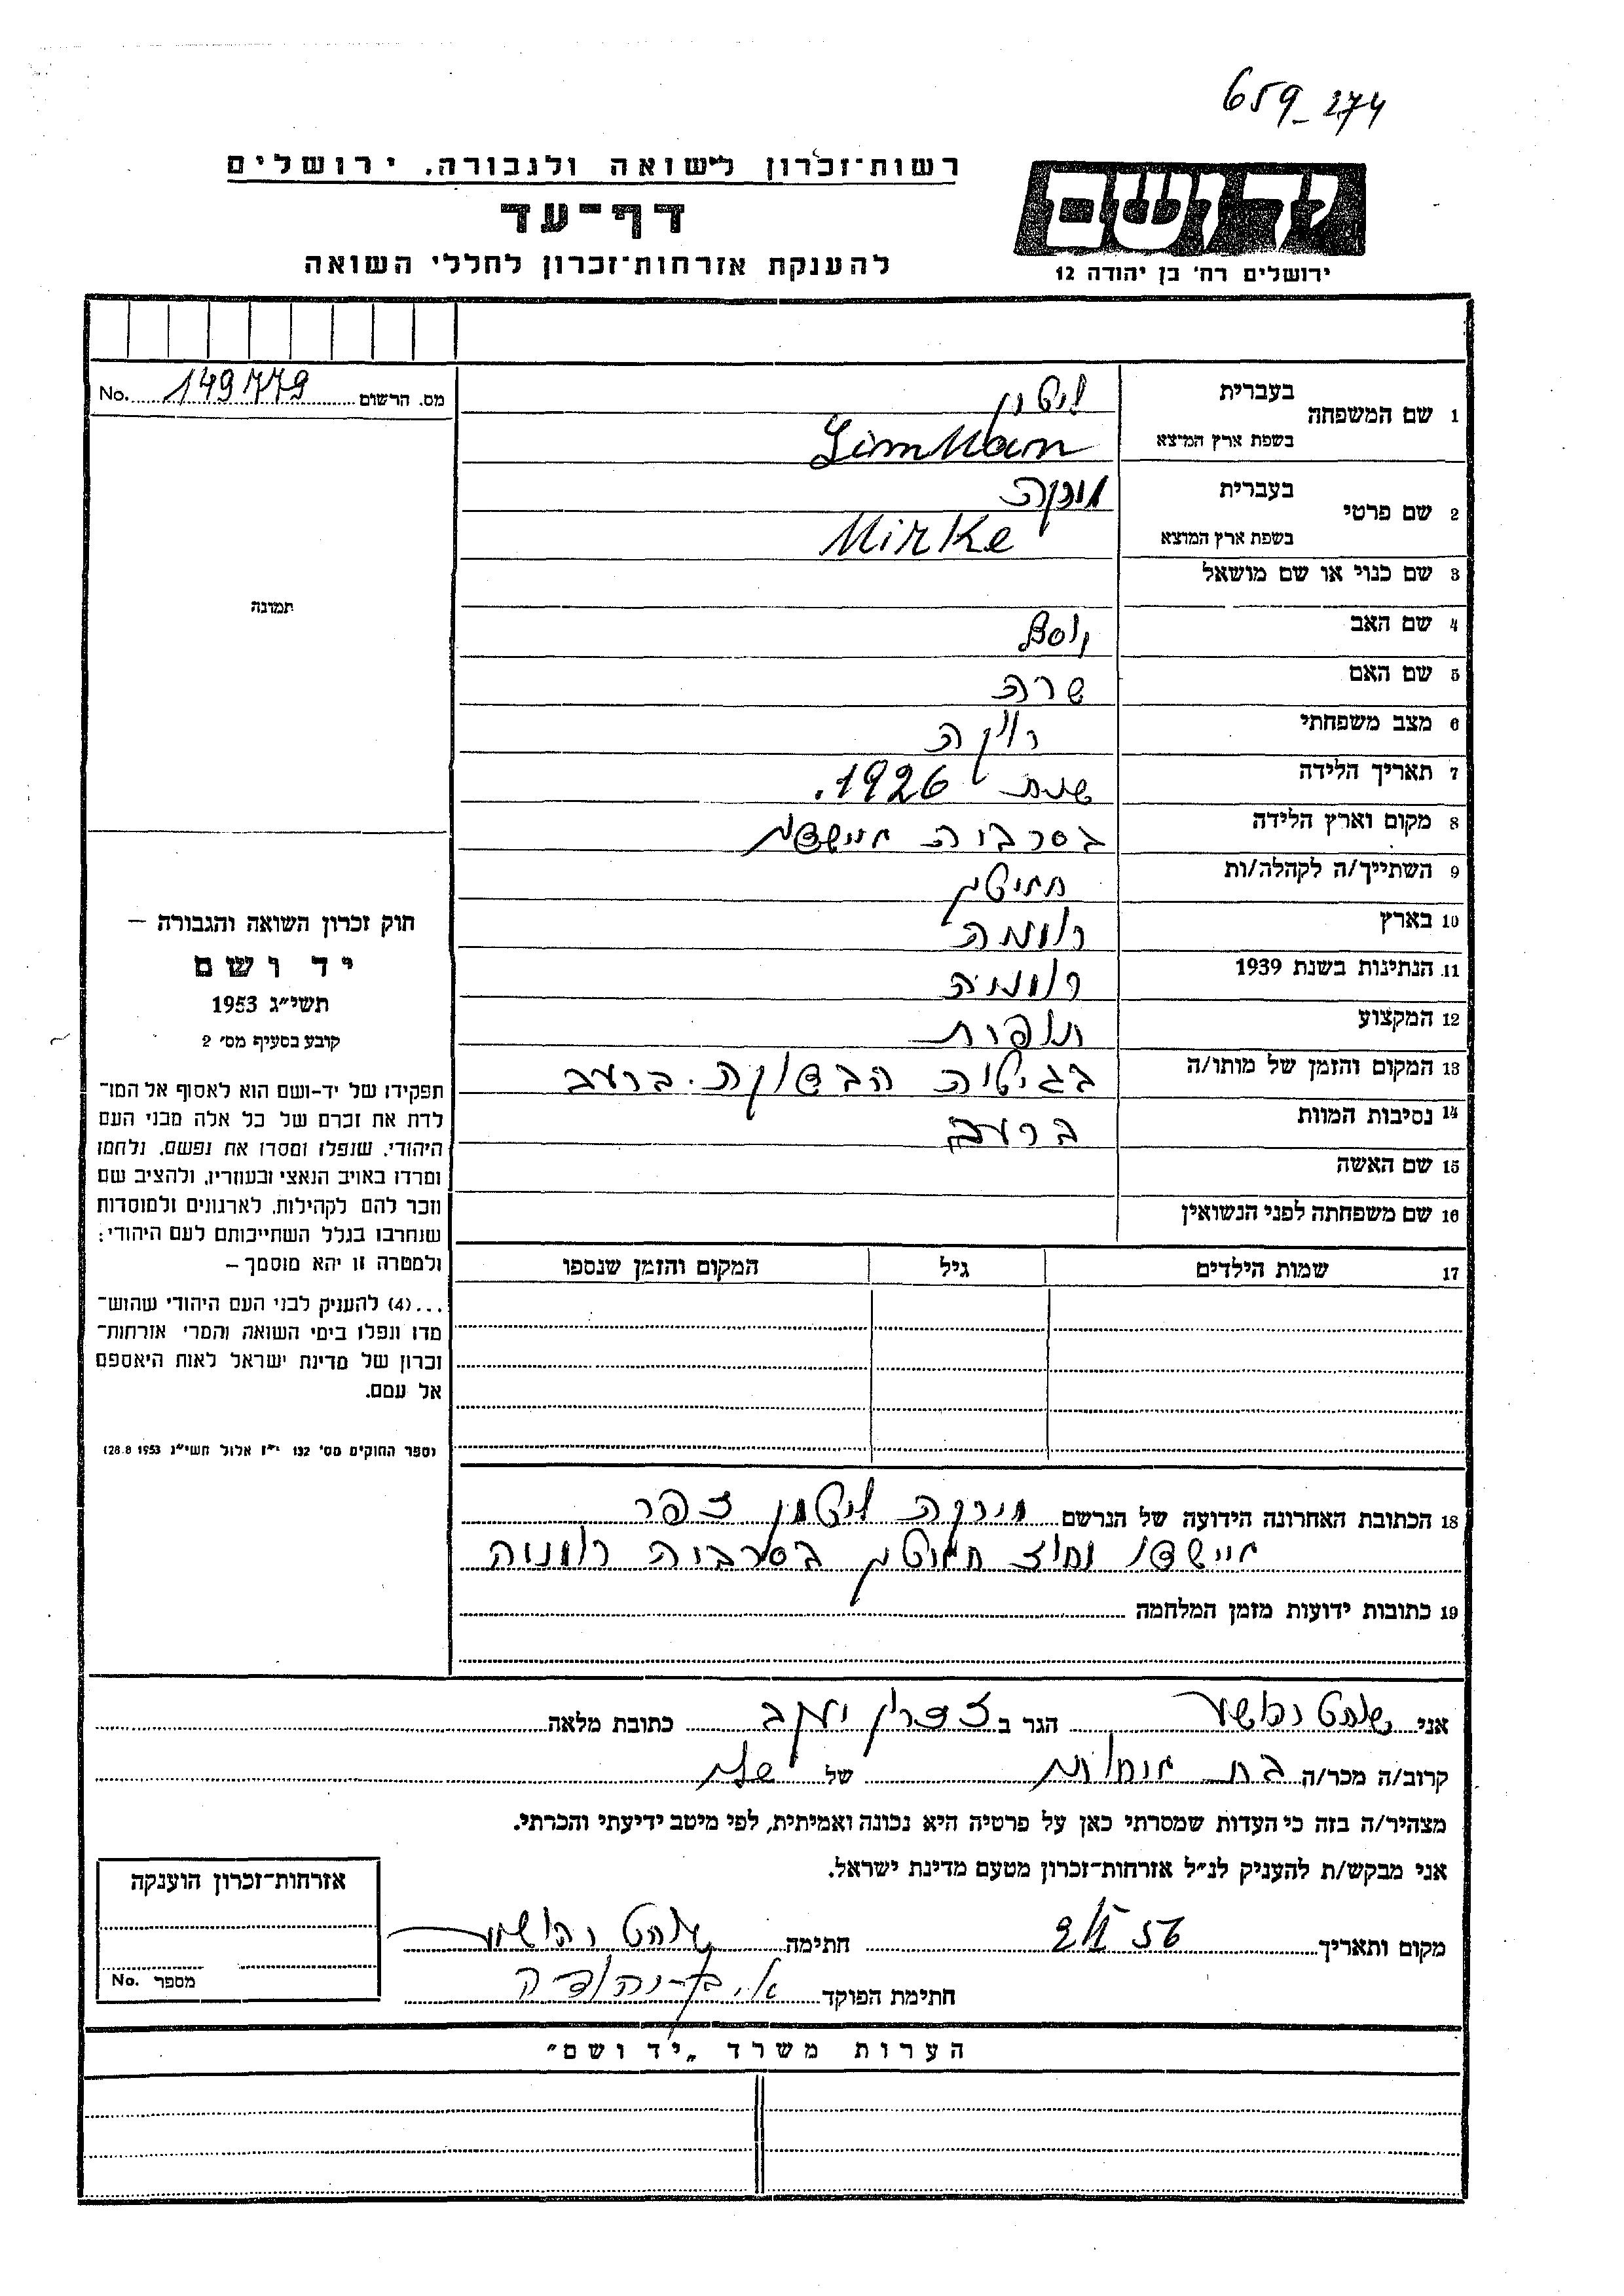 659-274
רשות־זכרון לשואה ולגבורה, ירושלים
דף־עד
להענקת אזרחות־זכרון לחללי השואה
יד ושם
ירושלים רח' בן יהודה 12
מס. הרשום 149779 No.
1 שם המשפחה
בעברית
בשפת ארץ המוצא
2 שם פרטי
בעברית מירקה
בשפת ארץ המוצא Mirke
3 שם כנוי או שם מושאל
4 שם האב
5 שם האם שרה
6 מצב משפחתי רווקה
7 תאריך הלידה שנת 1926.
8 מקום וארץ הלידה בסרביה
9 השתייך/ה לקהלה/ות חוטין
10 בארץ רומניה
11. הנתינות בשנת 1939 רומניה
12 המקצוע תופרת
13 המקום והזמן של מותו/ה ברעב
14 נסיבות המוות ברעב
15 שם האשה
16 שם משפחתה לפני הנשואין
17 שמות הילדים
גיל
המקום והזמן שנספו
18 הכתובת האחרונה הידועה של הנרשם מירקה כפר
מחוז חוטין בסרביה רומניה
19 כתובות ידועות מזמן המלחמה
תמונה
חוק זכרון השואה והגבורה –
יד ושם
תשי"ג 1953
קובע בסעיף מס' 2
תפקידו של יד-ושם הוא לאסוף אל המו־
לדת את זכרם של כל אלה מבני העם
היהודי, שנפלו ומסרו את נפשם, נלחמו
ומרדו באויב הנאצי ובעוזריו, ולהציב שם
וזכר להם לקהילות, לארגונים ולמוסדות
שנחרבו בגלל השתייכותם לעם היהודי:
ולמטרה זו יהא מוסמך –
...(4) להעניק לבני העם היהודי שהוש־
מדו ונפלו בימי השואה והמרי אזרחות־
זכרון של מדינת ישראל לאות היאספם
אל עמם.
(ספר החוקים מס' 132 י"ז אלול תשי"ג 28.8.1953)
אני הגר ב זכרון יעקב כתובת מלאה
קרוב/ה מכר/ה בת של
מצהיר/ה בזה כי העדות שמסרתי כאן על פרטיה היא נכונה ואמיתית, לפי מיטב ידיעתי והכרתי.
אני מבקש/ת להעניק לנ"ל אזרחות־זכרון מטעם מדינת ישראל.
מקום ותאריך חתימה
חתימת הפוקד
אזרחות־זכרון הוענקה
מספר No.
הערות משרד „יד ושם"